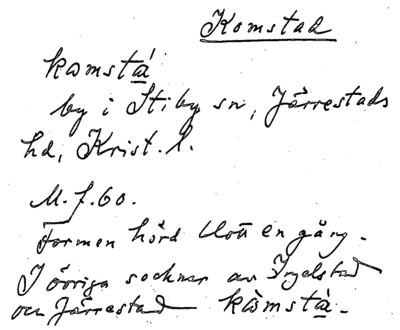 Komstad
komstá
by i Stiby sn, Järrestads
hd, Krist. l.
M. f. 60.
Formen hörd blott en gång.
I övriga socknar av Ingelstad
och Järrestad kòmstà.